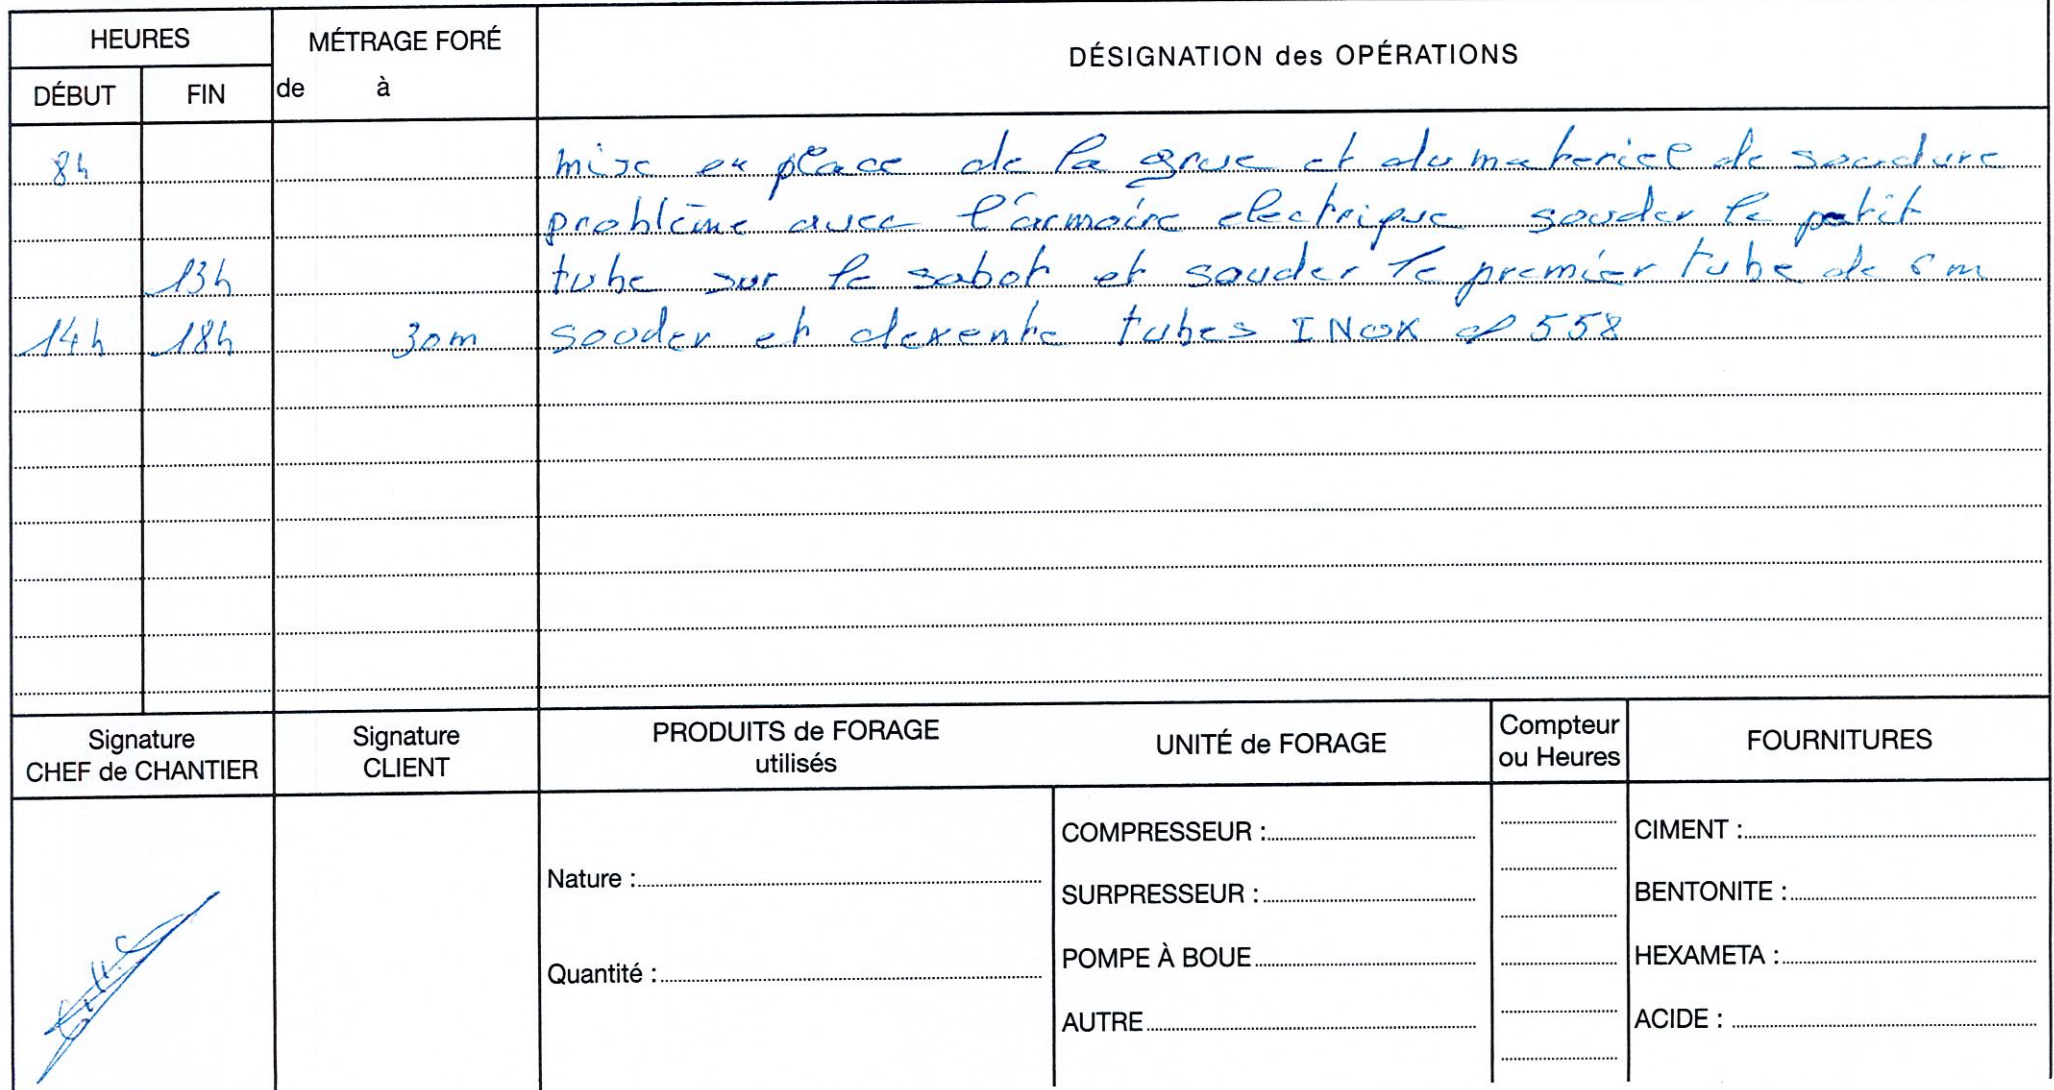 HEURES
MÉTRAGE FORÉ
DÉSIGNATION des OPÉRATIONS
DÉBUT FIN de à
8h mise en place de la grue et du materiel de soudure
problème avec l'armoire electrique souder le petit
13h tube sur le sabot et souder le premier tube de 6m
14h 18h 30m souder et dexente tubes INOX ø 558
Signature CHEF de CHANTIER
Signature CLIENT
PRODUITS de FORAGE utilisés
UNITÉ de FORAGE
Compteur ou Heures
FOURNITURES
Nature :
Quantité :
COMPRESSEUR :
SURPRESSEUR :
POMPE À BOUE
AUTRE
CIMENT :
BENTONITE :
HEXAMETA :
ACIDE :